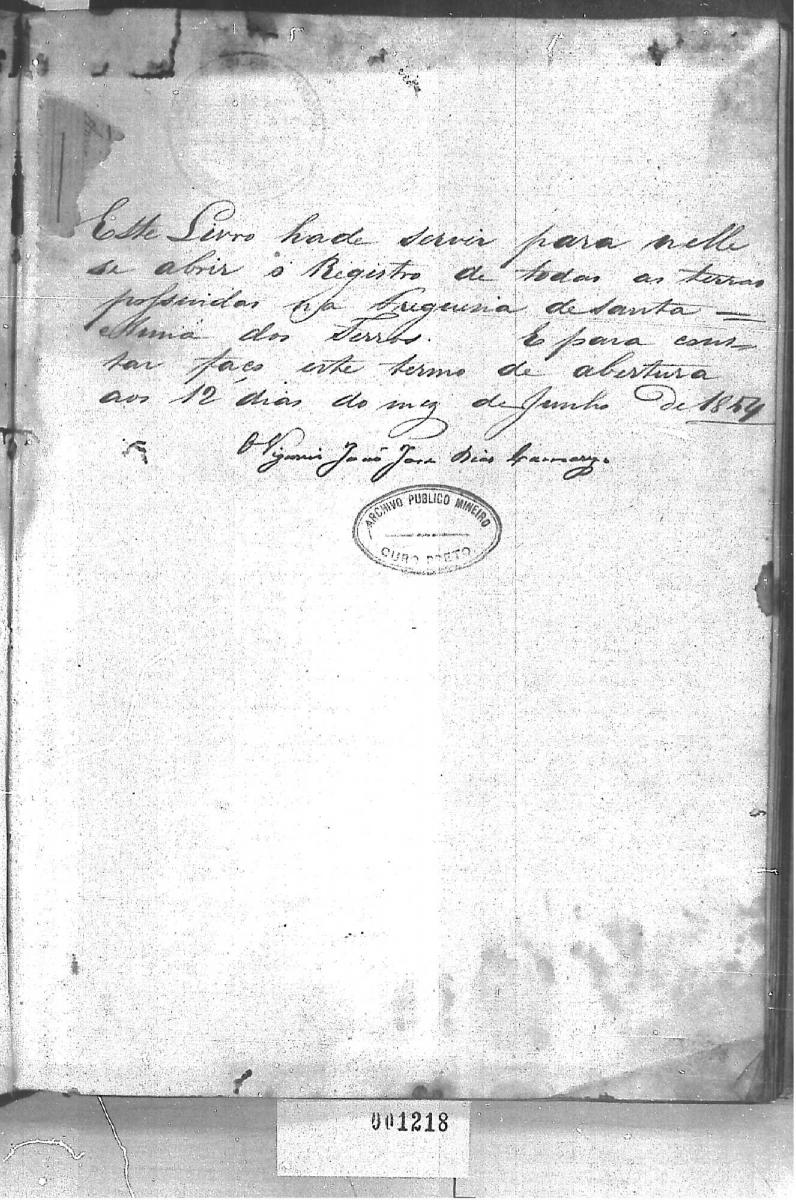 Este Livro hade servir para nelle
se abrir o Registro de todas as terras
possuidas na Freguesia de Santa
Anna dos Ferros. E para cons-
tar faço este termo de abertura
aos 12 dias do mez de Junho de 1854
O Vigario João José Dias Camargo
ARCHIVO PUBLICO MINEIRO
OURO PRETO
001218